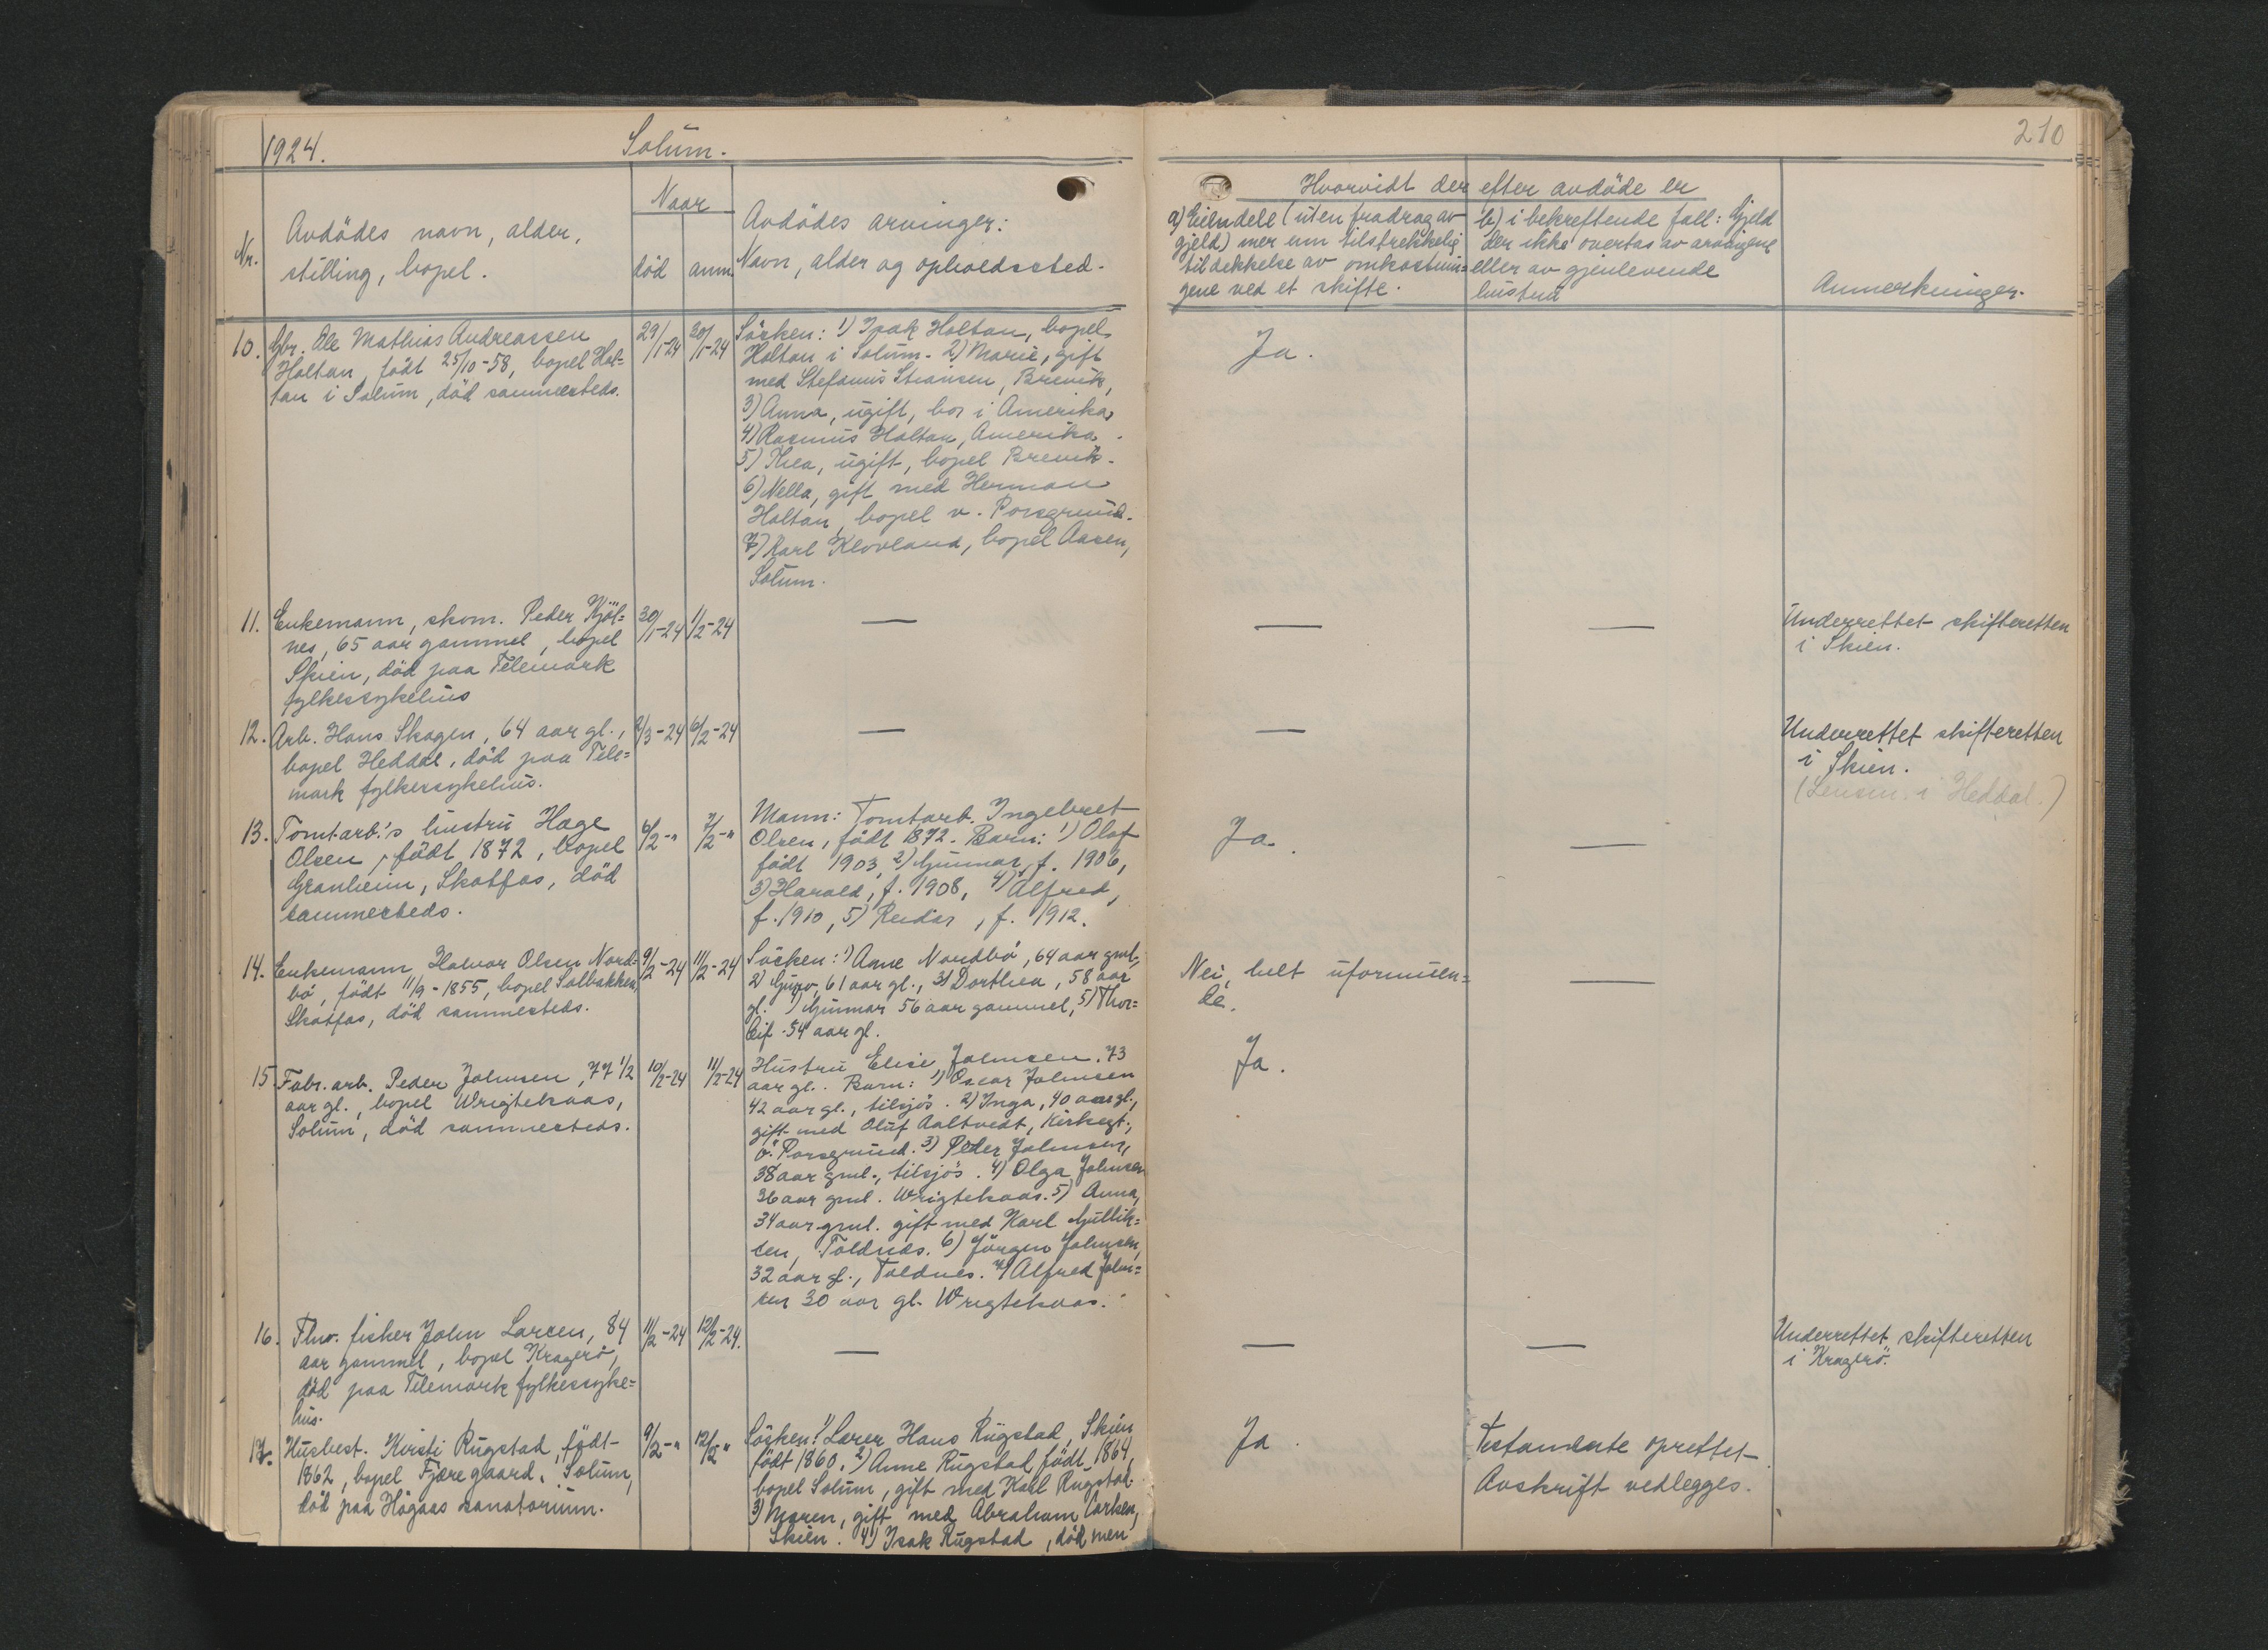 1924.
Solum.
210
Nr.
Avdödes navn, alder,
stilling, bopel.
Naar
död
anm.
Avdödes arvinger:
Navn, alder og opholdssted.
Hvorvidt der efter avdöde er
a) Eiendele (uten fradrag av
gjeld) mer enn tilstrekkelig
til dekkelse av omkostnin=
gene ved et skifte.
b) i bekreftende fall: Gjeld
der ikke overtas av arvingene
eller av gjenlevende
hustru
Anmerkninger.
10. Gbr. Ole Mathias Andreassen
Holtan, födt 25/10-58, bopel Hol=
tan i Solum, död sammesteds.
29/1-24
30/1-24
Sösken: 1) Isak Holtan, bopel
Holtan i Solum. 2) Marie, gift
med Stefanus Stiansen, Brevik,
3) Anna, ugift, bor i Amerika,
4) Rasmus Holtan, Amerika.
5) Thea, ugift, bopel Brevik.
6) Nella, gift med Herman
Holtan, bopel v. Porsgrund.
7) Karl Klovland, bopel Aasen,
Solum.
Ja.
11. Enkemann, skom. Peder Kjöl=
nes, 65 aar gammel, bopel
Skien, död paa Telemark
fylkessykehus
30/1-24
1/2-24
—
—
—
Underrettet skifteretten
i Skien.
12. Arb. Hans Skogen, 64 aar gl.,
bopel Heddal, död paa Tele=
mark fylkessykehus.
2/3-24
6/2-24
—
—
Underrettet skifteretten
i Skien.
(Lensm. i Heddal.)
13. Tomtarb.'s hustru Hage
Olsen, födt 1872, bopel
Granheim, Skotfos, död
sammesteds.
6/2-"
7/2-"
Mann: Tomtarb. Ingebret
Olsen, födt 1872. Barn: 1) Olaf
födt 1903, 2) Gunnar, f. 1906,
3) Harald, f. 1908, 4) Alfred,
f. 1910, 5) Reidar, f. 1912.
Ja.
—
14. Enkemann Halvor Olsen Nord=
bö, födt 11/9-1855, bopel Solbakken,
Skotfos, död sammesteds.
9/2-24
11/2-24
Sösken: 1) Anne Nordbö, 64 aar gml.,
2) Guro, 61 aar gl., 3) Dorthea, 58 aar
gl. 4) Gunnar 56 aar gammel, 5) Thor=
leif 54 aar gl.
Nei, helt uformuen=
de.
—
15 Fabr. arb. Peder Johnsen, 77 1/2
aar gl., bopel Wrigtekaas,
Solum, död sammesteds.
10/2-24
11/2-24
Hustru Elise Johnsen, 73
aar gl. Barn: 1) Oscar Johnsen
42 aar gl., tilsjös. 2) Inga, 40 aar gl.,
gift med Oluf Aaltvedt, Kirkegt.,
ö. Porsgrund. 3) Peder Johnsen,
38 aar gml., tilsjös. 4) Olga Johnsen
36 aar gml. Wrigtekaas. 5) Anna,
34 aar gml. gift med Karl Gullik=
sen, Toldnes. 6) Jörgen Johnsen,
32 aar gl., Toldnes. 7) Alfred John=
sen 30 aar gl. Wrigtekaas.
Ja.
16. Fhv. fisker John Larsen, 84
aar gammel, bopel Kragerö,
död paa Telemark fylkessyke=
hus.
11/2-24
12/2-24.
—
—
—
Underrettet skifteretten
i Kragerö.
17. Husbest. Kirsti Rugstad, födt
1862, bopel Fjæregaard, Solum,
död paa Högaas sanatorium.
9/2-"
12/2"
Sösken: 1) Lærer Hans Rugstad, Skien
födt 1860. 2) Anne Rugstad födt 1864,
bopel Solum, gift med Karl Rugstad.
3) Maren, gift med Abraham Carlsen,
Skien. 4) Isak Rugstad, död men
Ja.
Testamente oprettet
Avskrift vedlegges.